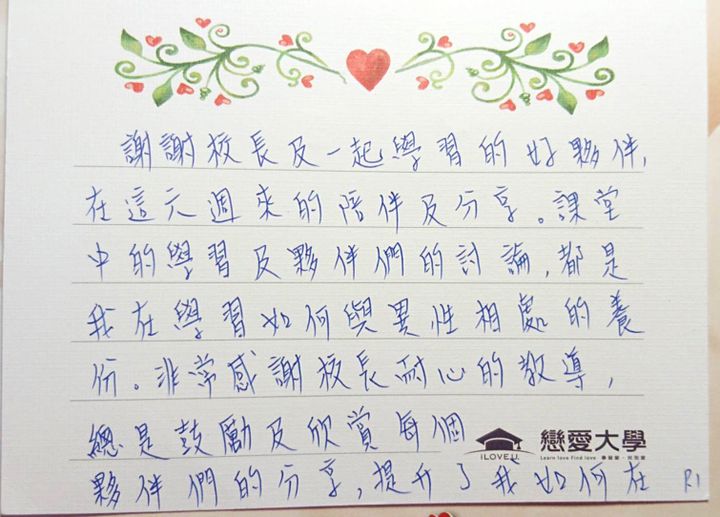 謝謝校長及一起學習的好夥伴,
在這六週來的陪伴及分享。課堂
中的學習及夥伴們的討論,都是
我在學習如何與異性相處的養
份。非常感謝校長耐心的教導,
總是鼓勵及欣賞每個
夥伴們的分享,提升了我如何在
I LOVE U.
戀愛大學
Learn love Find love